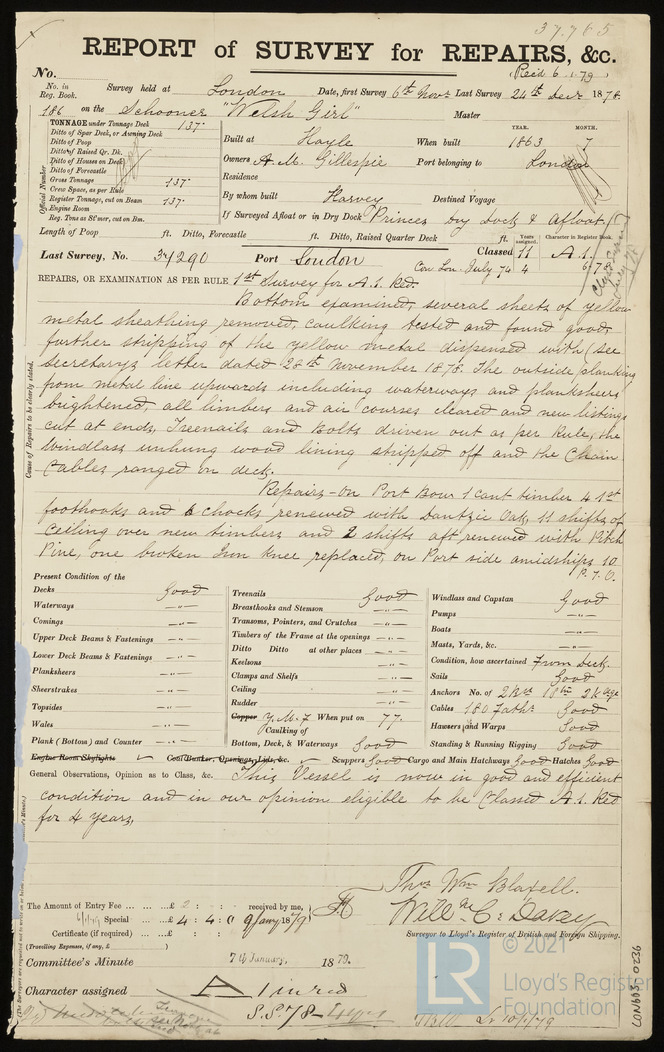 37765
REPORT of SURVEY for REPAIRS, &c.
(Rec'd 6.1.79)
No.
No. in Reg. Book. Survey held at London Date, first Survey 6th Novr Last Survey 24th Decr 1878
186 on the Schooner "Welsh Girl" Master
TONNAGE under Tonnage Deck 137
Ditto of Spar Deck, or Awning Deck
Ditto of Poop
Ditto of Raised Qr. Dk.
Ditto of Houses on Deck
Ditto of Forecastle
Gross Tonnage 137
Crew Space, as per Rule
Register Tonnage, cut on Beam 137
Engine Room
Reg. Tons as St'mer, cut on Bm.
Official Number
YEAR. MONTH.
Built at Hayle When built 1863 7
Owners A. M. Gillespie Port belonging to London
Residence
By whom built Harvey Destined Voyage
If Surveyed Afloat or in Dry Dock Princes Dry Dock & Afloat
Length of Poop ft. Ditto, Forecastle ft. Ditto, Raised Quarter Deck ft.
Years assigned. Character in Register Book.
Last Survey, No. 34290 Port London Classed 11 A.1.
Con Lon. July 74 4 6.78
REPAIRS, OR EXAMINATION AS PER RULE 1st Survey for A.1. Red.
Bottom examined, several sheets of yellow
metal sheathing removed, caulking tested and found good,
further stripping of the yellow metal dispensed with (see
secretary's letter dated 28th November 1878. The outside planking
from metal line upwards including waterways and planksheers
brightened, all limbers and air courses cleared and new listings
cut at ends, Treenails and Bolts driven out as per Rule, the
Windlass unhung wood lining stripped off and the Chain
Cables ranged on deck.
Repairs - On Port Bow 1 cant timber 4 1st
foothooks and 6 chocks renewed with Dantzic Oak, 11 shifts of
Ceiling over new timbers and 2 shifts aft renewed with Pitch
Pine, one broken Iron Knee replaced, on Port side amidships 10
P.T.O.
Cause of Repairs to be clearly stated.
Present Condition of the
Decks Good
Waterways -"-
Comings -"-
Upper Deck Beams & Fastenings -"-
Lower Deck Beams & Fastenings -"-
Planksheers -"-
Sheerstrakes -"-
Topsides -"-
Wales -"-
Plank (Bottom) and Counter -"-
Treenails Good
Breasthooks and Stemson -"-
Transoms, Pointers, and Crutches -"-
Timbers of the Frame at the openings -"-
Ditto Ditto at other places -"-
Keelsons -"-
Clamps and Shelfs -"-
Ceiling -"-
Rudder -"-
Copper Y.M.F When put on 77.
Caulking of
Bottom, Deck, & Waterways Good
Windlass and Capstan Good
Pumps -"-
Boats -"-
Masts, Yards, &c. -"-
Condition, how ascertained From Deck.
Sails Good
Anchors No. of
Cables 180 Faths Good
Hawsers and Warps Good
Standing & Running Rigging Good
Engine Room Skylights Coal Bunker, Openings, Lids, &c. Scuppers Good Cargo and Main Hatchways Good Hatches Good
General Observations, Opinion as to Class, &c. This Vessel is now in good and efficient
condition and in our opinion eligible to be Classed A.1. Red
for 4 years,
Thos Wm Blaxell.
Willm C. Davey
Surveyor to Lloyd's Register of British and Foreign Shipping.
The Amount of Entry Fee £ 2 : : received by me,
Special £ 4 : 4 : 0 9 Jany 1879
Certificate (if required) £ : :
(Travelling Expenses, if any, £ )
Committee's Minute 7th January, 1879.
Character assigned A 1 in red
S.S. 78 - 4 yrs
10/1/79
LON603-0236
© 2021
LR
Lloyd's Register
Foundation